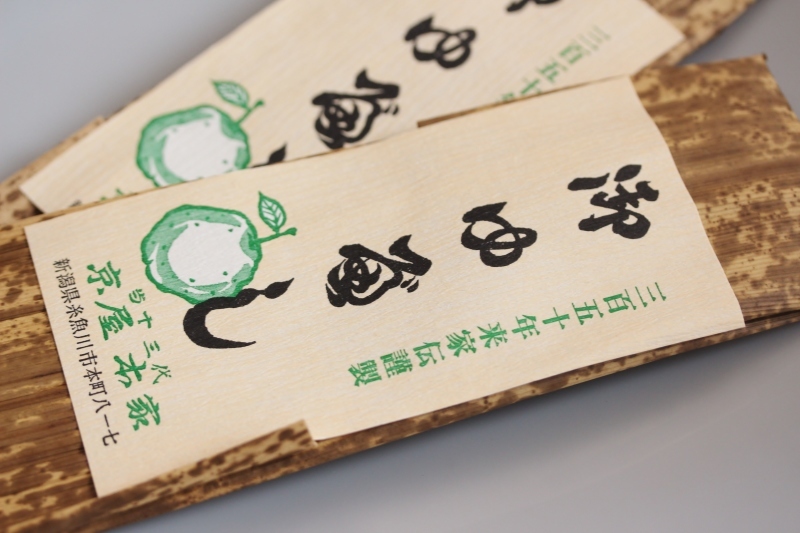 御ゆべし
三百五十年来家伝謹製
当十三代
京屋本家
新潟県糸魚川市本町八ー七
ゆべ
三百五十年